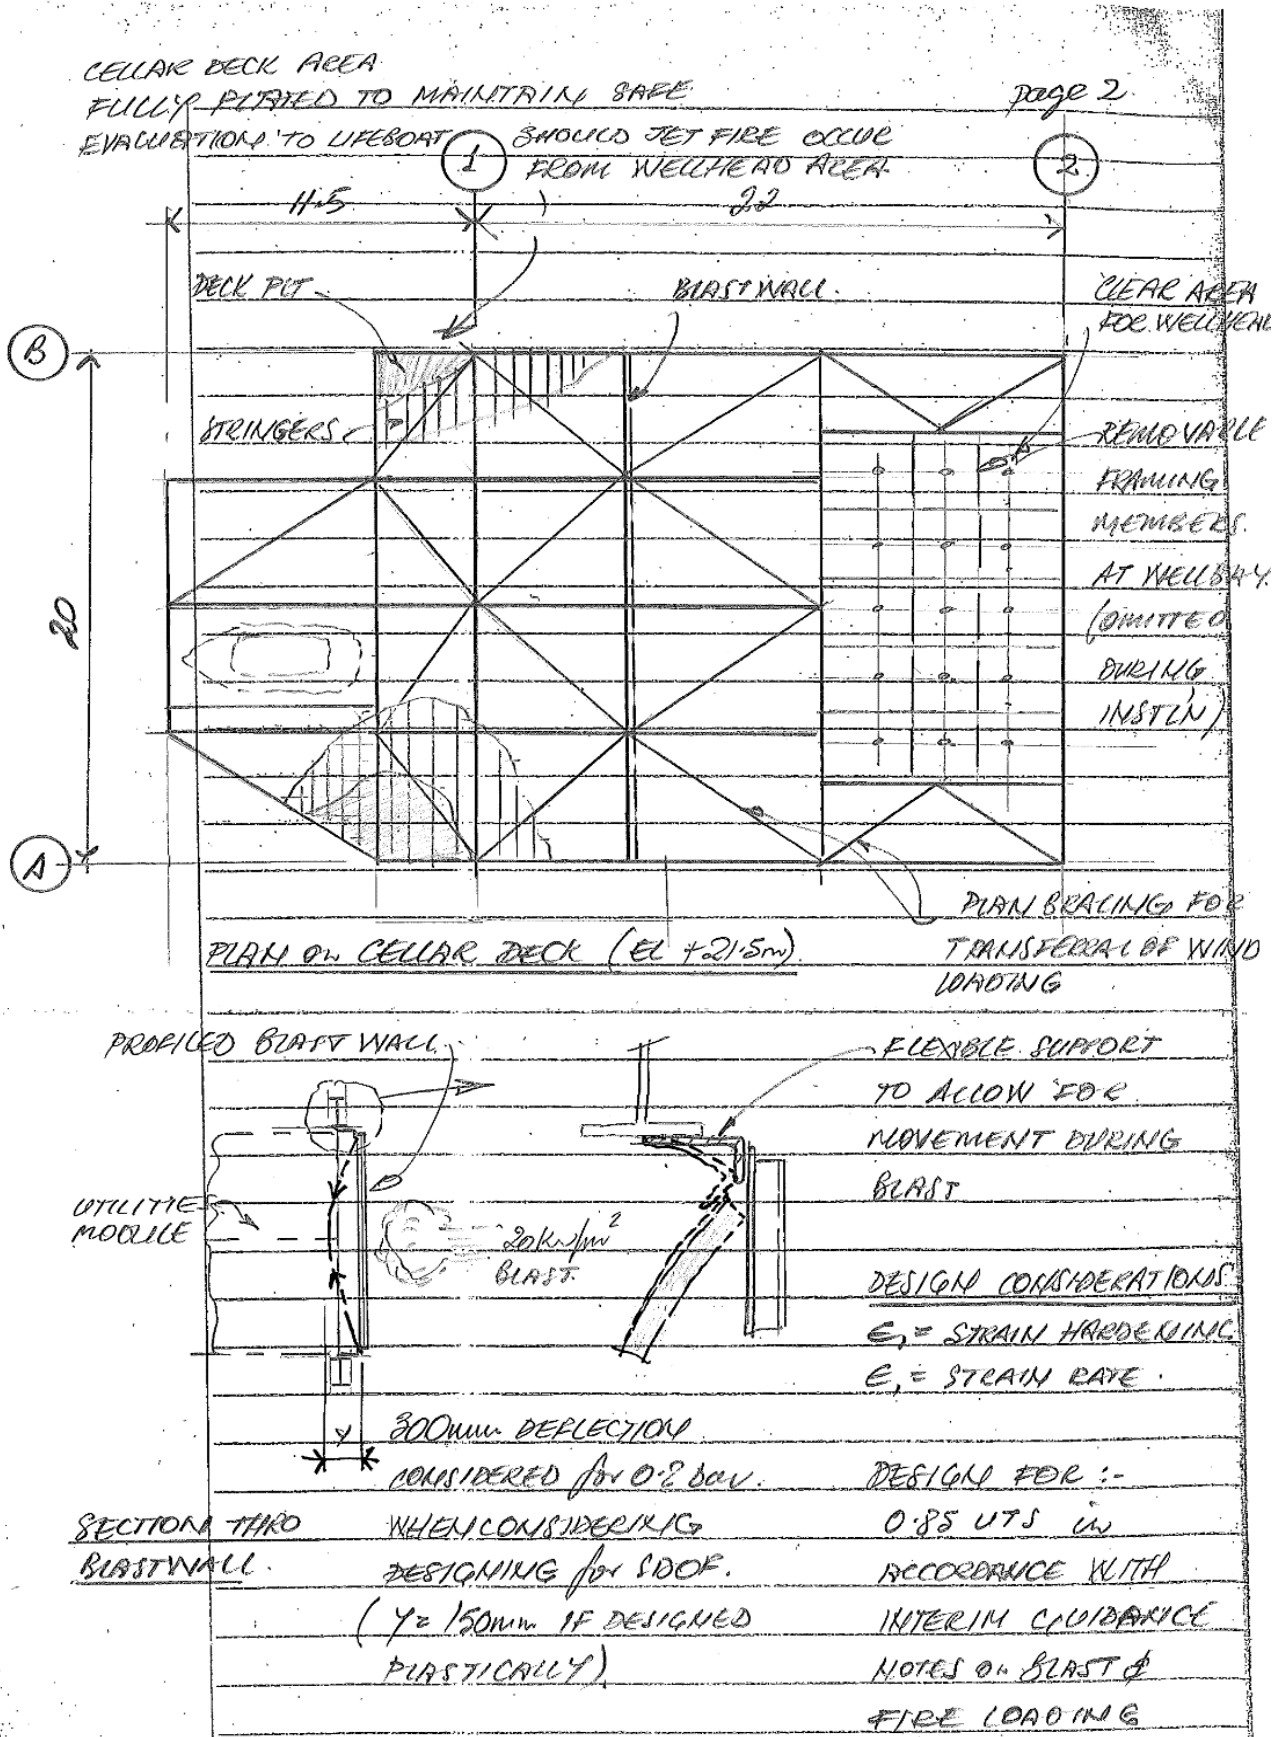 CELLAR DECK AREA
FULLY PLATED TO MAINTAIN SAFE
EVALUATION TO LIFEBOAT
SHOULD JET FIRE OCCUR
FROM WELLHEAD AREA.
page 2.
1
2
11.5
22
DECK PLT
BLASTWALL.
CLEAR AREA
FOR WELLHEAD
B
STRINGERS
REMOVABLE
FRAMING
MEMBERS.
AT WELLBAY.
(OMITTED
DURING
INSTLN)
20
A
PLAN BRACING FOR
TRANSFERRAL OF WIND
LOADING
PLAN ON CELLAR DECK (EL +21.5m)
PROFILED BLAST WALL
FLEXIBLE SUPPORT
TO ALLOW FOR
MOVEMENT DURING
BLAST
UTILITIES
MODULE
20KN/m²
BLAST.
DESIGN CONSIDERATIONS
ϵ, = STRAIN HARDENING
ϵ, = STRAIN RATE.
Y
300mm DEFLECTION
CONSIDERED for 0.2 bar.
WHEN CONSIDERING
DESIGNING for SDOF.
(Y = 150mm IF DESIGNED
PLASTICALLY)
SECTION THRO
BLASTWALL.
DESIGN FOR :-
0.85 UTS in
ACCORDANCE WITH
INTERIM GUIDANCE
NOTES ON BLAST &
FIRE LOADING